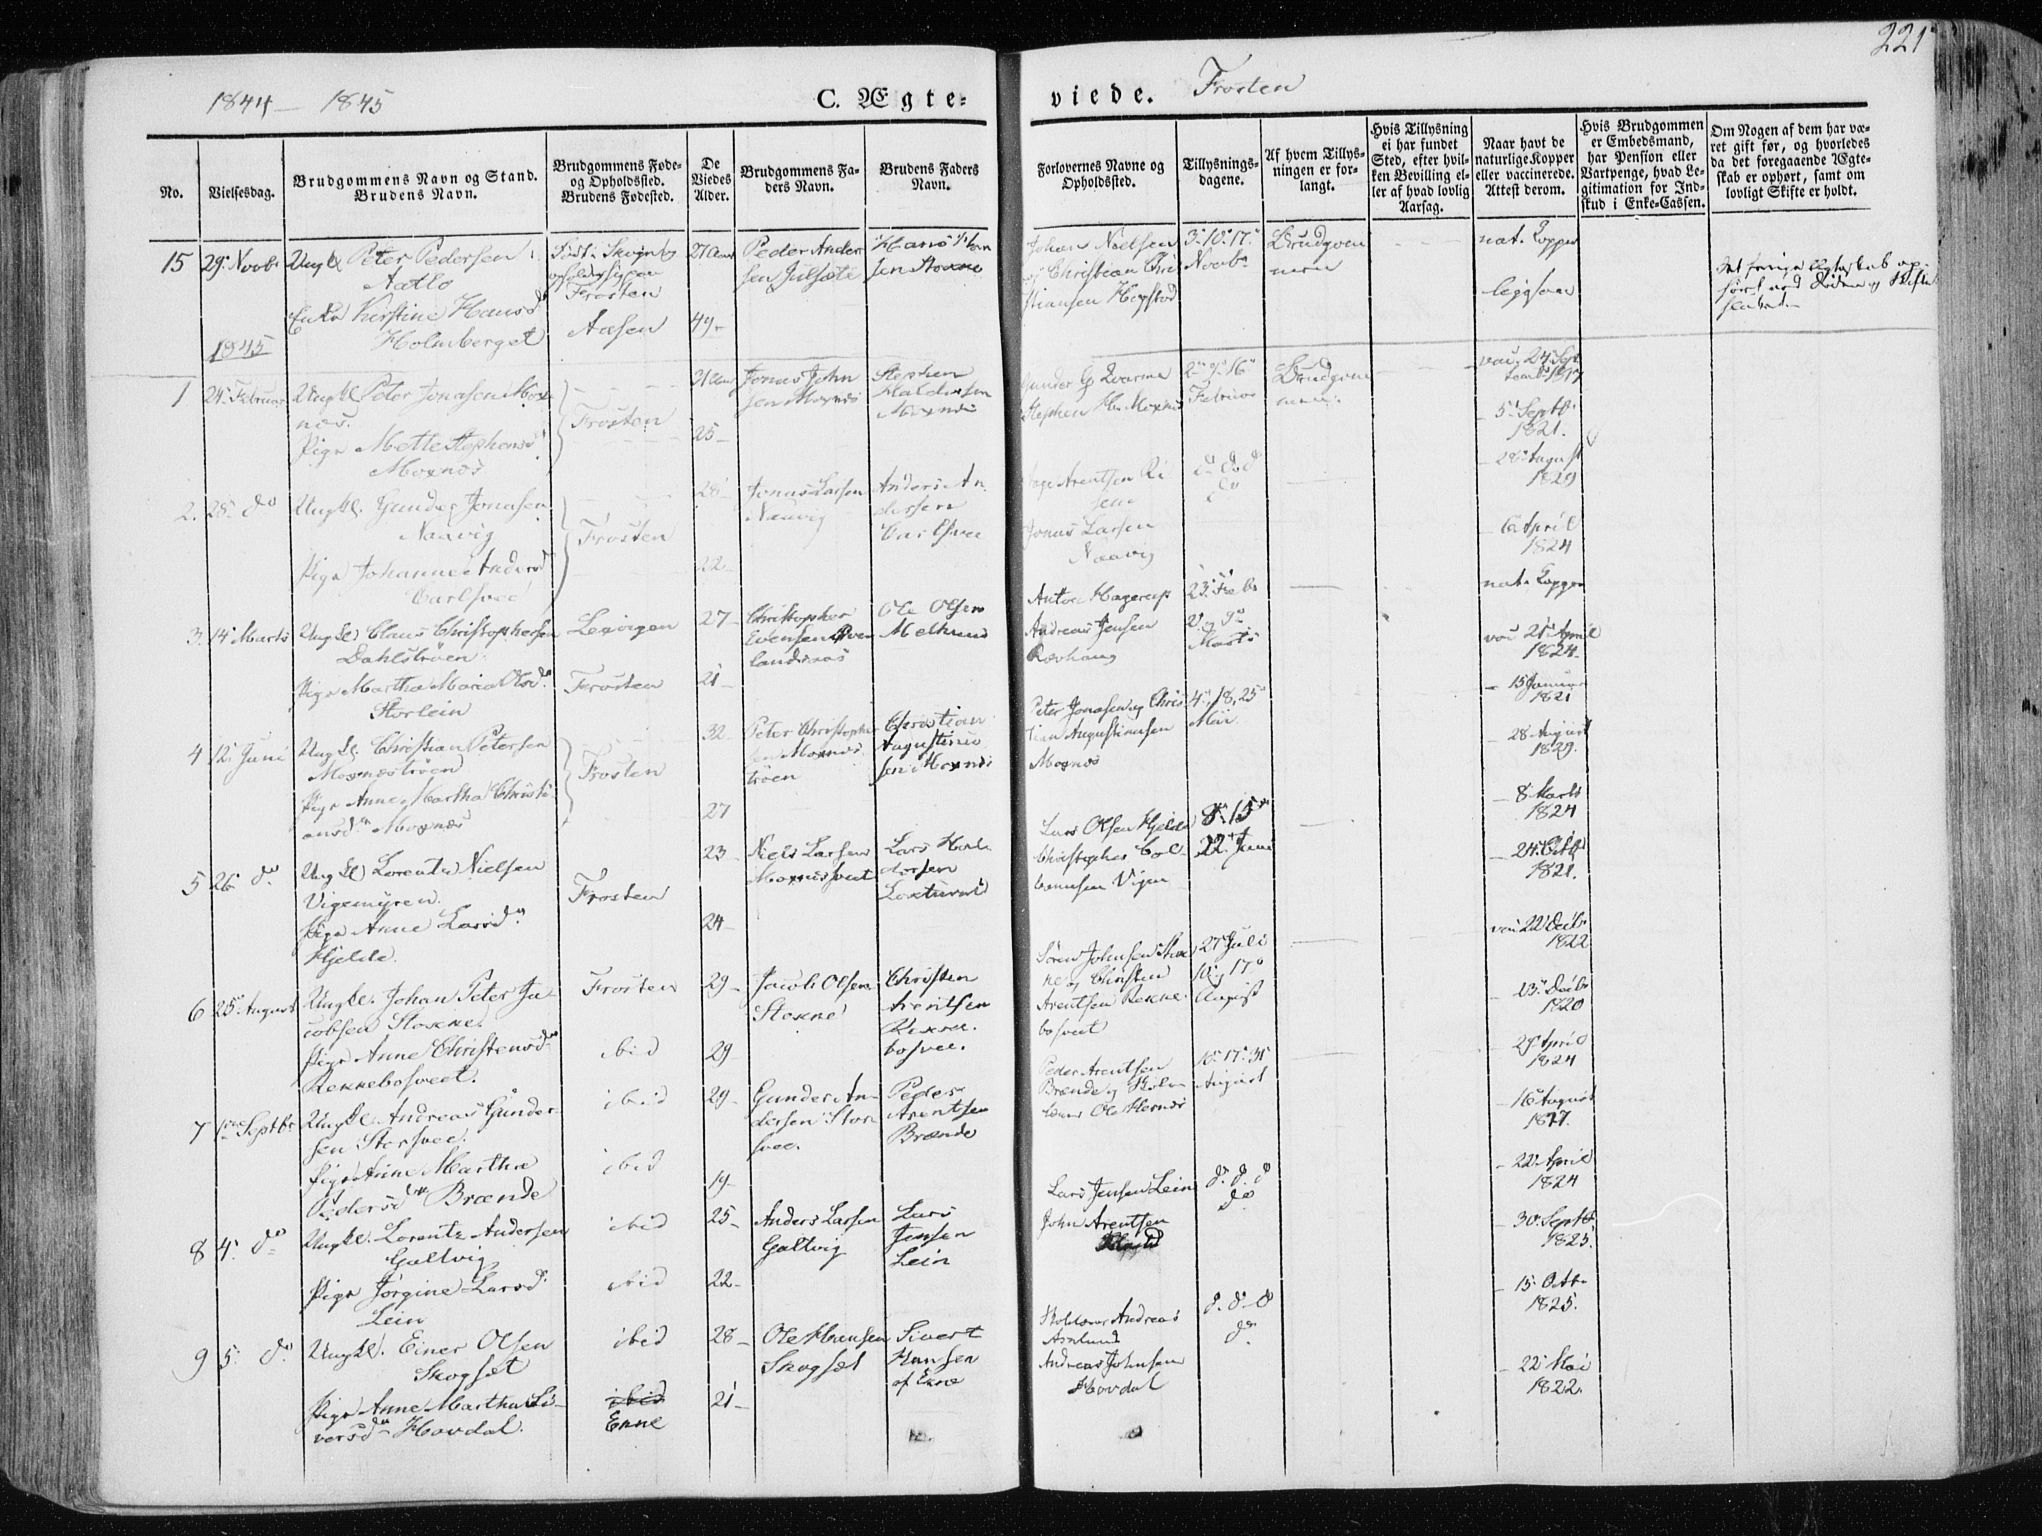 221
1844 – 1845
C. Ægte-
viede.
Frosten
No.
Vielsesdag.
Brudgommens Navn og Stand.
Brudens Navn.
Brudgommens Føde-
og Opholdssted.
Brudens Fødested.
De
Viedes
Alder.
Brudgommens Fa-
ders Navn.
Brudens Faders
Navn.
Forlovernes Navne og
Opholdssted.
Tillysnings-
dagene.
Af hvem Tillys-
ningen er for-
langt.
Hvis Tillysning
ei har fundet
Sted, efter hvil-
ken Bevilling el-
ler af hvad lovlig
Aarsag.
Naar havt de
naturlige Kopper
eller vaccinerede.
Attest derom.
Hvis Brudgommen
er Embedsmand,
har Pension eller
Vartpenge, hvad Le-
gitimation for Ind-
skud i Enke-Cassen.
Om Nogen af dem har væ-
ret gift før, og hvorledes
da det foregaaende Ægte-
skab er ophørt, samt om
lovligt Skifte er holdt.
15
29 Novbr
Ungk Peter Pedersen
Aatlo
Enke Kirstine Hansd
Holmberget
Frosten
Aasen
49
Peder Ander
sen
Hans
sen
Johan Nielsen
og Christian Chri
stiansen Hogstad
3. 10. 17.
Novbr
Brudgom
men
nat. Kopper
ligesaa
1845
1
24 Februar
Ungkl Peter Jonasen Mox
nes.
Pige Mette Stephensd
Moxnes
Frosten
25
Jonas John
sen Moxnes
Stephen
Haldorsen
Moxnes
Stephen H. Moxnes
2. 9. 16
Februar
Brudgom
men
vac. 24 Sep
tembr 1817
– 5 Septb.
1821.
2.
28 do
Ungkl. Gunder Jonasen
Naavig
Pige Johanne Andersd
Carlsvee
Frosten
28
22
Jonas Larsen
Naavig
Anders An
dersen
Carlsvee
Aage Arentsen Ri
Jonas Larsen
Naavig
d d d
do
28 August
1820
6 April
1824
3.
14 Marts
Ungkl Claus Christophersen
Dahlstrøen
Pige Martha Maria Olsd
Storlein
Lexvigen
Frosten
27
21
Christopher
Evensen
Ole Olsen
Melhuus
Anton Hagerup
Andreas Jensen
Rævhaug
23 Febr
2 og 9
Marts
nat. Kopper
vac 21 April
1824
4
12 Juni
Ungkl. Christian Petersen
Moxnestrøen
Pige Anne Martha Christi
ansd Moxnes
Frosten
32
27
Peter Christopher
sen Moxnes
trøen
Christian
Augustinus
sen Moxnes
Peter Jonasen og Chris
tian Augustinusen
Moxnes
4. 18. 25
Mai
– 15 Januar
1821
– 28 August
1829.
5
26 do
Ungkl Lorents Nielsen
Vigemyren.
Pige Anne Larsd
Hjelde.
Frosten
23
24
Niels Larsen
Moxnesveet
Lars Hal
dorsen
Lars Olsen Hjelde
Christopher Col
bensen Vigen
8. 15
22 Juni
– 8 Marts
1824
– 24 Octb
1821.
6
25 August
Ungkl. Johan Peter Ja
cobsen Stokke.
Pige Anne Christensd
Rennebosveet.
Frosten
ibid
29
29
Jacob Olsen
Stokke
Christen
Arentsen
Renne
bosvee.
Søren Johnsen Stok
ke og Christen
Arentsen Renne
bosveet
27 Juli
10 og 17
August
vac 22 Decbr
1822
– 13 Decbr
1820
7
1 Septbr
Ungkl. Andreas Gunder
sen Storsvee.
Pige Anne Martha
Pedersd Brænde
ibid
ibid
29
19
Gunder An
dersen Stor
svee.
Peder
Arentsen
Brænde
Peder Arentsen
Brænde og Skole
lærer Ole Hernes
10. 17. 31
August
– 29 April
1824
– 16 August
1827.
8
4. do
Ungkl. Lorentz Andersen
Galtvig
Pige Jørgine Larsd
Lein
ibid
ibid
25
22
Anders Larsen
Galtvig
Lars
Jensen
Lein
Lars Jensen Lein
John Arentsen
d. d. d
do
– 22 April
1824
– 30 Septb
1825.
9
5. do
Ungkl. Einer Olsen
Skogset
Pige Anne Martha Si
versd Hovdal.
ibid
ibid
Ekne
28
21
Ole Hansen
Skogset
Sivert
Hansen
af Ekne
Skolelærer Andreas
Aslund
Andreas Johnsen
Hovdal
d. d. d
do
– 15 Octbr
1825.
– 22 Mai
1822.